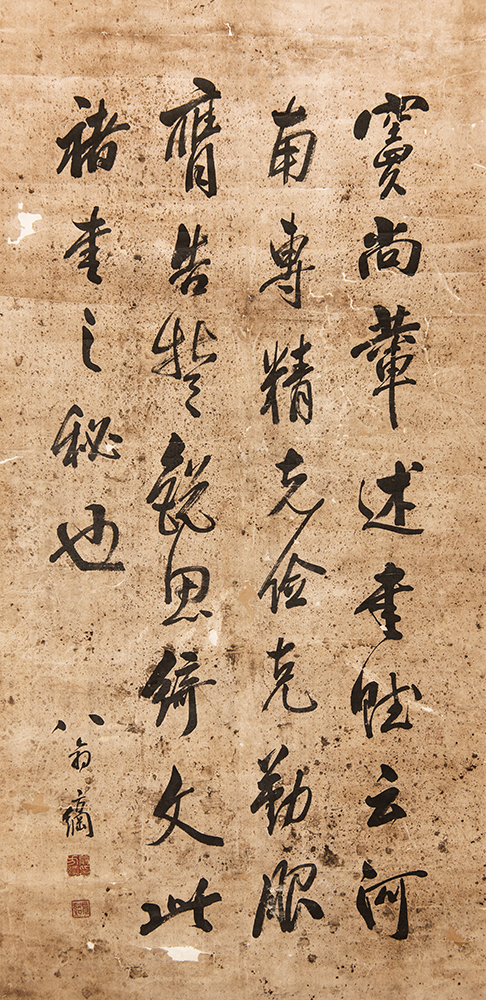 竇尚輦述書賦云河
南專精克儉克勤服
膺告誓銳思綺文此
褚書之秘也
八翁